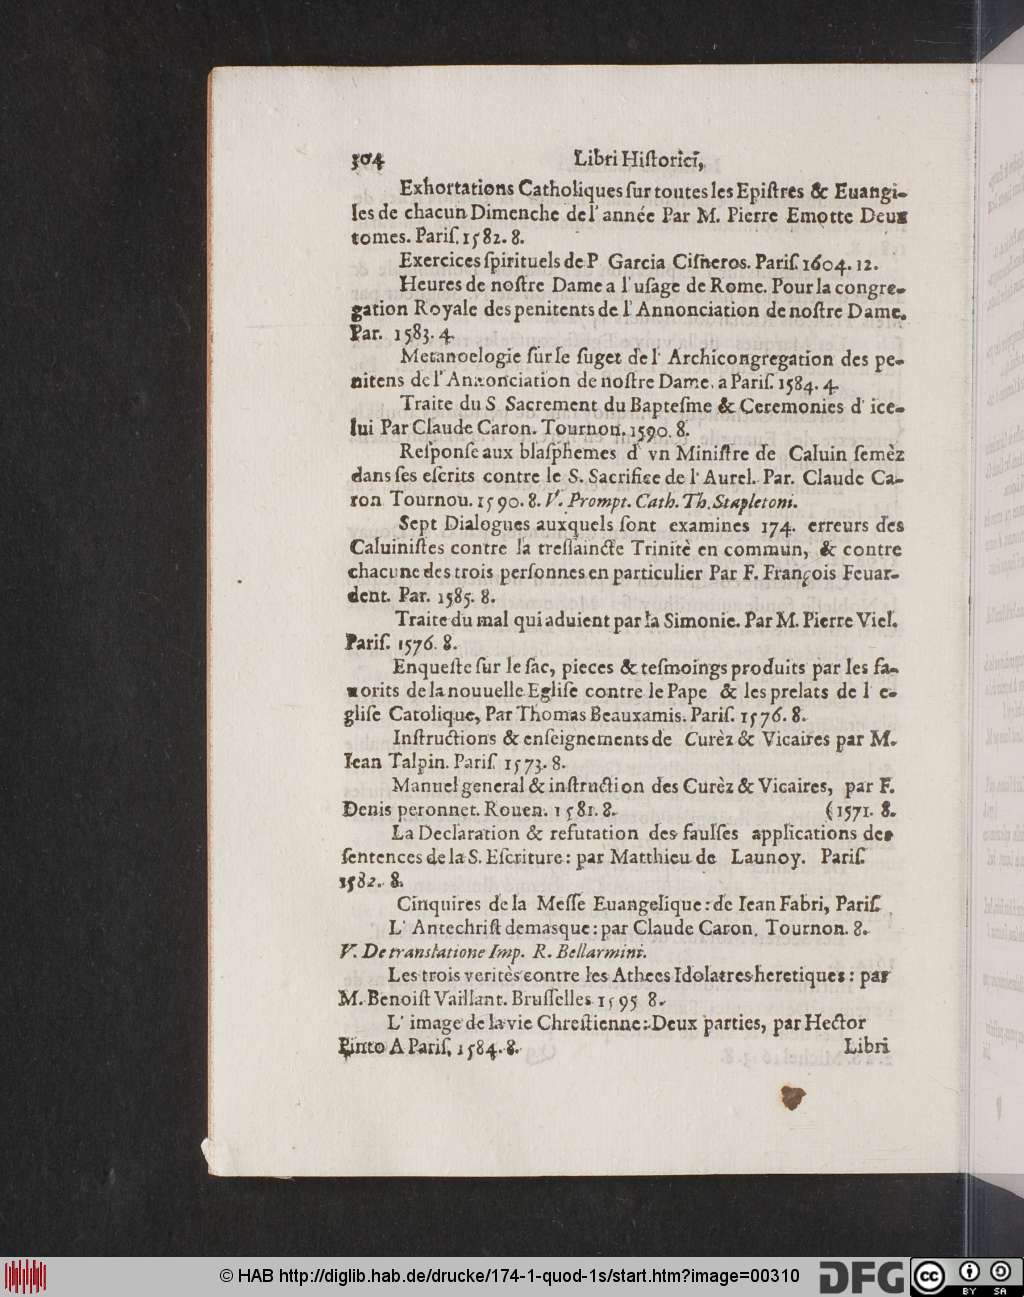 304 Libri Hiſtorici,
Exhortations Catholiques ſur toutes les Epiſtres & Euangi-
les de chacun Dimenche de l' année Par M. Pierre Emotte Deux
tomes. Pariſ. 1582. 8.
Exercices ſpirituels de P Garcia Ciſneros. Pariſ. 1604. 12.
Heures de noſtre Dame a l' uſage de Rome. Pour la congre-
gation Royale des penitents de l' Annonciation de noſtre Dame.
Par. 1583. 4.
Metanoelogie ſur le ſuget de l' Archicongregation des pe-
nitens de l' Annonciation de noſtre Dame. a Pariſ. 1584. 4.
Traite du S Sacrement du Bapteſme & Ceremonies d' ice-
lui Par Claude Caron. Tournon. 1590. 8.
Reſponſe aux blaſphemes d' vn Miniſtre de Caluin ſemèz
dans ſes eſcrits contre le S. Sacrifice de l' Aurel. Par. Claude Ca-
ron Tournou. 1590. 8. V. Prompt. Cath. Th. Stapletoni.
Sept Dialogues auxquels ſont examines 174. erreurs des
Caluiniſtes contre la treſſaincte Trinitè en commun, & contre
chacune des trois perſonnes en particulier Par F. François Feuar-
dent. Par. 1585. 8.
Traite du mal qui aduient par la Simonie. Par M. Pierre Viel.
Pariſ. 1576. 8.
Enqueſte ſur le ſac, pieces & teſmoings produits par les fa-
uorits de la nouuelle Egliſe contre le Pape & les prelats de l e-
gliſe Catolique, Par Thomas Beauxamis. Pariſ. 1576. 8.
Inſtructions & enſeignements de Curèz & Vicaires par M.
Iean Talpin. Pariſ. 1573. 8.
Manuel general & inſtruction des Curèz & Vicaires, par F.
Denis peronnet. Rouen. 1581. 8. (1571. 8.
La Declaration & refutation des faulſes applications des
ſentences de la S. Eſcriture: par Matthieu de Launoy. Pariſ.
1582. 8.
Cinquires de la Meſſe Euangelique: de Iean Fabri, Pariſ.
L' Antechriſt demasque: par Claude Caron. Tournon. 8.
V. De translatione Imp. R. Bellarmini.
Les trois veritès contre les Athees Idolatres heretiques: par
M. Benoiſt Vaillant. Bruſſelles 1595 8.
L' image de la vie Chreſtienne: Deux parties, par Hector
Pinto A Pariſ, 1584. 8. Libri
© HAB http://diglib.hab.de/drucke/174-1-quod-1s/start.htm?image=00310 DFG cc BY SA